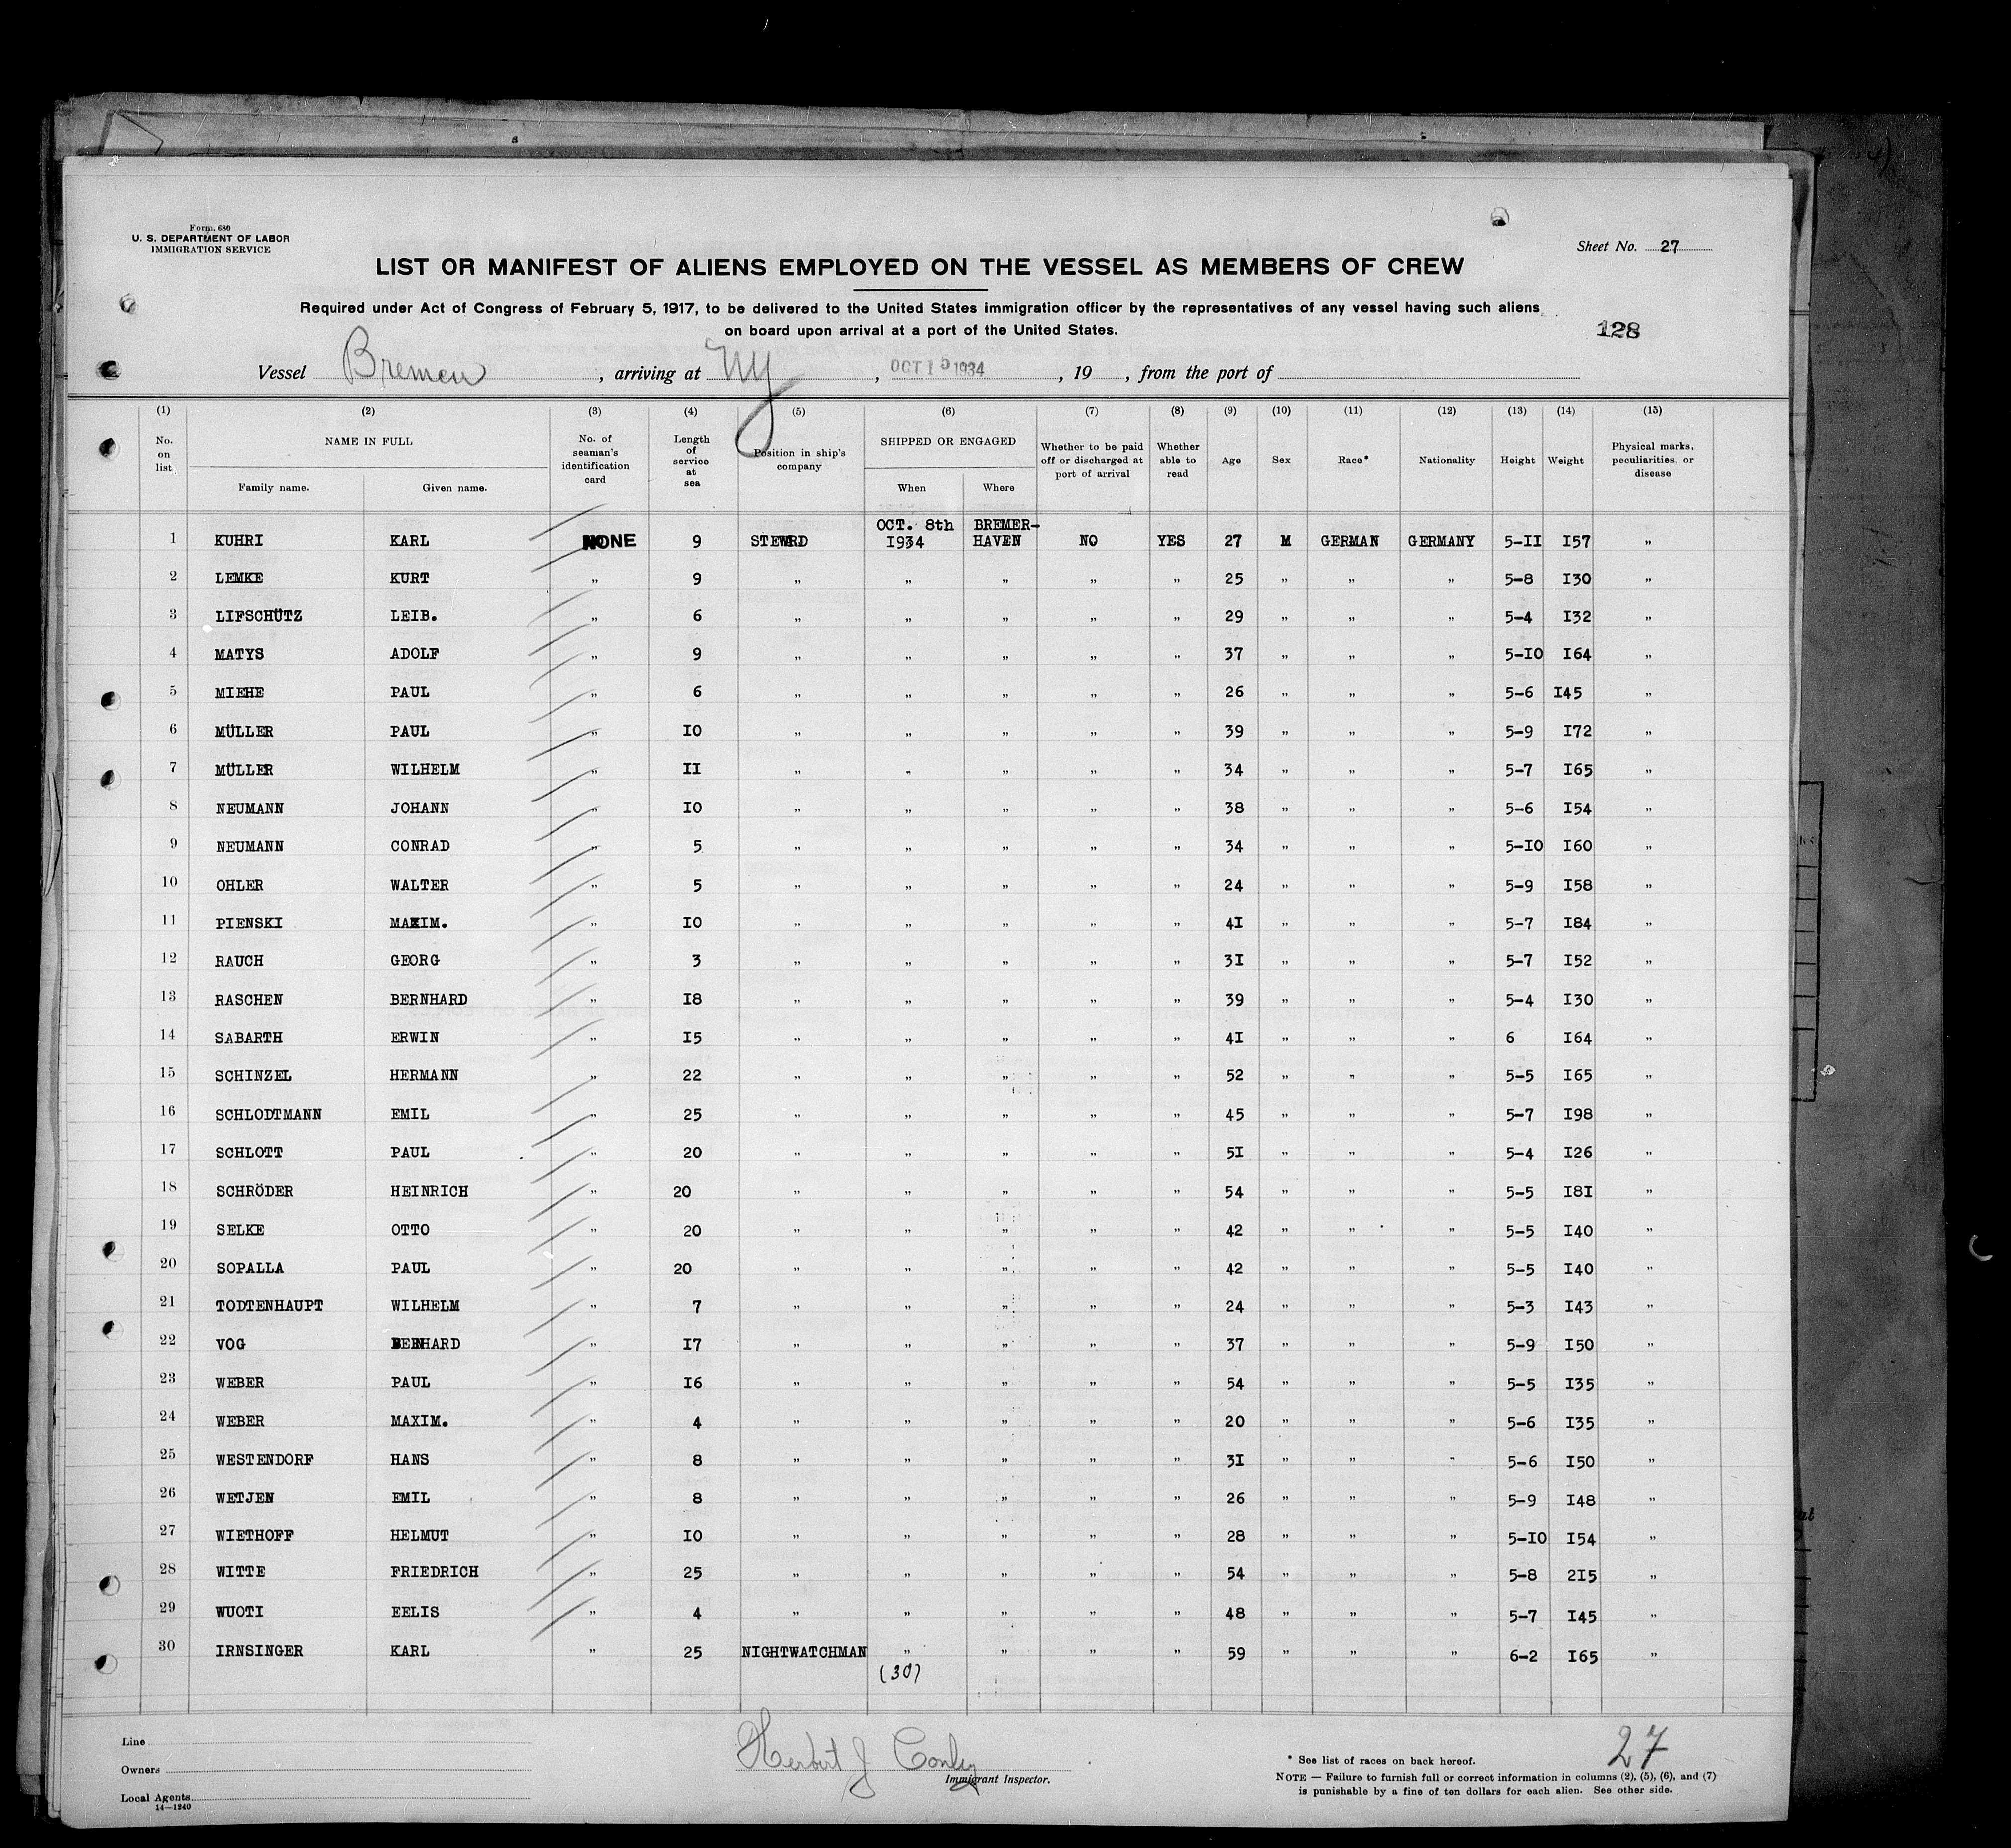 Form 680
U. S. DEPARTMENT OF LABOR
IMMIGRATION SERVICE
Sheet No. 27
LIST OR MANIFEST OF ALIENS EMPLOYED ON THE VESSEL AS MEMBERS OF CREW
Required under Act of Congress of February 5, 1917, to be delivered to the United States immigration officer by the representatives of any vessel having such aliens
on board upon arrival at a port of the United States.
128
Vessel Bremen, arriving at NY, OCT 15 1934, 19 , from the port of
(1) (2) (3) (4) (5) (6) (7) (8) (9) (10) (11) (12) (13) (14) (15)
No. on list NAME IN FULL Family name. Given name. No. of seaman's identification card Length of service at sea Position in ship's company SHIPPED OR ENGAGED When Where Whether to be paid off or discharged at port of arrival Whether able to read Age Sex Race* Nationality Height Weight Physical marks, peculiarities, or disease
OCT. 8th BREMER-
1 KUHRI KARL NONE 9 STEWARD I934 HAVEN NO YES 27 M GERMAN GERMANY 5-II I57 "
2 LEMKE KURT " 9 " " " " " 25 " " " 5-8 I30 "
3 LIFSCHÜTZ LEIB. " 6 " " " " " 29 " " " 5-4 I32 "
4 MATYS ADOLF " 9 " " " " " 37 " " " 5-IO I64 "
5 MIEHE PAUL " 6 " " " " " 26 " " " 5-6 I45 "
6 MÜLLER PAUL " IO " " " " " 39 " " " 5-9 I72 "
7 MÜLLER WILHELM " II " " " " " 34 " " " 5-7 I65 "
8 NEUMANN JOHANN " IO " " " " " 38 " " " 5-6 I54 "
9 NEUMANN CONRAD " 5 " " " " " 34 " " " 5-IO I60 "
10 OHLER WALTER " 5 " " " " " 24 " " " 5-9 I58 "
11 PIENSKI MAXIM. " IO " " " " " 4I " " " 5-7 I84 "
12 RAUCH GEORG " 3 " " " " " 3I " " " 5-7 I52 "
13 RASCHEN BERNHARD " I8 " " " " " 39 " " " 5-4 I30 "
14 SABARTH ERWIN " I5 " " " " " 4I " " " 6 I64 "
15 SCHINZEL HERMANN " 22 " " " " " 52 " " " 5-5 I65 "
16 SCHLODTMANN EMIL " 25 " " " " " 45 " " " 5-7 I98 "
17 SCHLOTT PAUL " 20 " " " " " 5I " " " 5-4 I26 "
18 SCHRÖDER HEINRICH " 20 " " " " " 54 " " " 5-5 I8I "
19 SELKE OTTO " 20 " " " " " 42 " " " 5-5 I40 "
20 SOPALLA PAUL " 20 " " " " " 42 " " " 5-5 I40 "
21 TODTENHAUPT WILHELM " 7 " " " " " 24 " " " 5-3 I43 "
22 VOG BERNHARD " I7 " " " " " 37 " " " 5-9 I50 "
23 WEBER PAUL " I6 " " " " " 54 " " " 5-5 I35 "
24 WEBER MAXIM. " 4 " " " " " 20 " " " 5-6 I35 "
25 WESTENDORF HANS " 8 " " " " " 3I " " " 5-6 I50 "
26 WETJEN EMIL " 8 " " " " " 26 " " " 5-9 I48 "
27 WIETHOFF HELMUT " IO " " " " " 28 " " " 5-IO I54 "
28 WITTE FRIEDRICH " 25 " " " " " 54 " " " 5-8 2I5 "
29 WUOTI EELIS " 4 " " " " " 48 " " " 5-7 I45 "
30 IRNSINGER KARL " 25 NIGHTWATCHMAN " " " " 59 " " " 6-2 I65 "
(30)
Line
Owners
Local Agents
14—1240
Herbert J Conley
Immigrant Inspector.
27
* See list of races on back hereof.
NOTE — Failure to furnish full or correct information in columns (2), (5), (6), and (7)
is punishable by a fine of ten dollars for each alien. See other side.